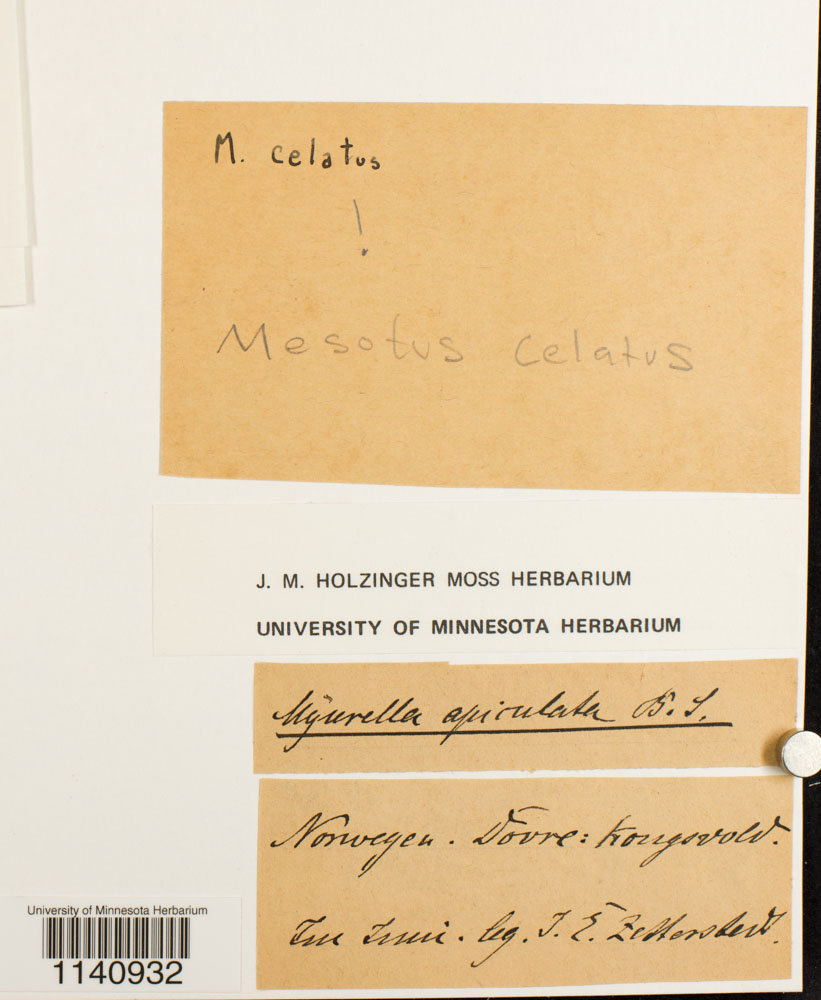 M. celatus
!
Mesotus celatus
J. M. HOLZINGER MOSS HERBARIUM
UNIVERSITY OF MINNESOTA HERBARIUM
Myurella apiculata B. S.
Norwegen. Dovre: Kongsvold.
Im Juni. leg. J. E. Zetterstedt.
University of Minnesota Herbarium
1140932